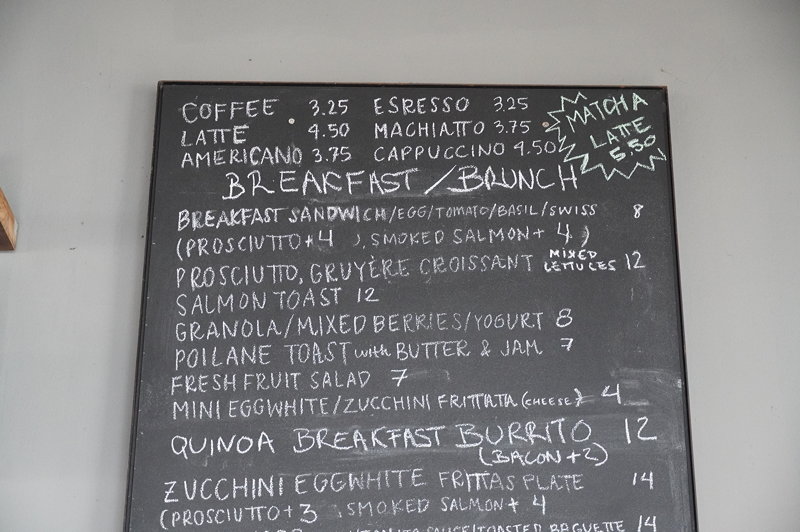 COFFEE 3.25 ESRESSO 3.25
LATTE 4.50 MACHIATTO 3.75
AMERICANO 3.75 CAPPUCCINO 4.50
MATCHA
LATTE
5.50
BREAKFAST/BRUNCH
BREAKFAST SANDWICH/EGG/TOMATO/BASIL/SWISS 8
(PROSCIUTTO+4 ), SMOKED SALMON+ 4 )
PROSCIUTTO, GRUYÈRE CROISSANT MIXED LETTUCES 12
SALMON TOAST 12
GRANOLA/MIXED BERRIES/YOGURT 8
POILANE TOAST with BUTTER & JAM 7
FRESH FRUIT SALAD 7
MINI EGGWHITE/ZUCCHINI FRITTATA (CHEESE) 4
QUINOA BREAKFAST BURRITO 12
(BACON+2)
ZUCCHINI EGGWHITE FRITTAS PLATE 14
(PROSCIUTTO+3 , SMOKED SALMON+ 4
SAUCE/TOASTED BAGUETTE 14